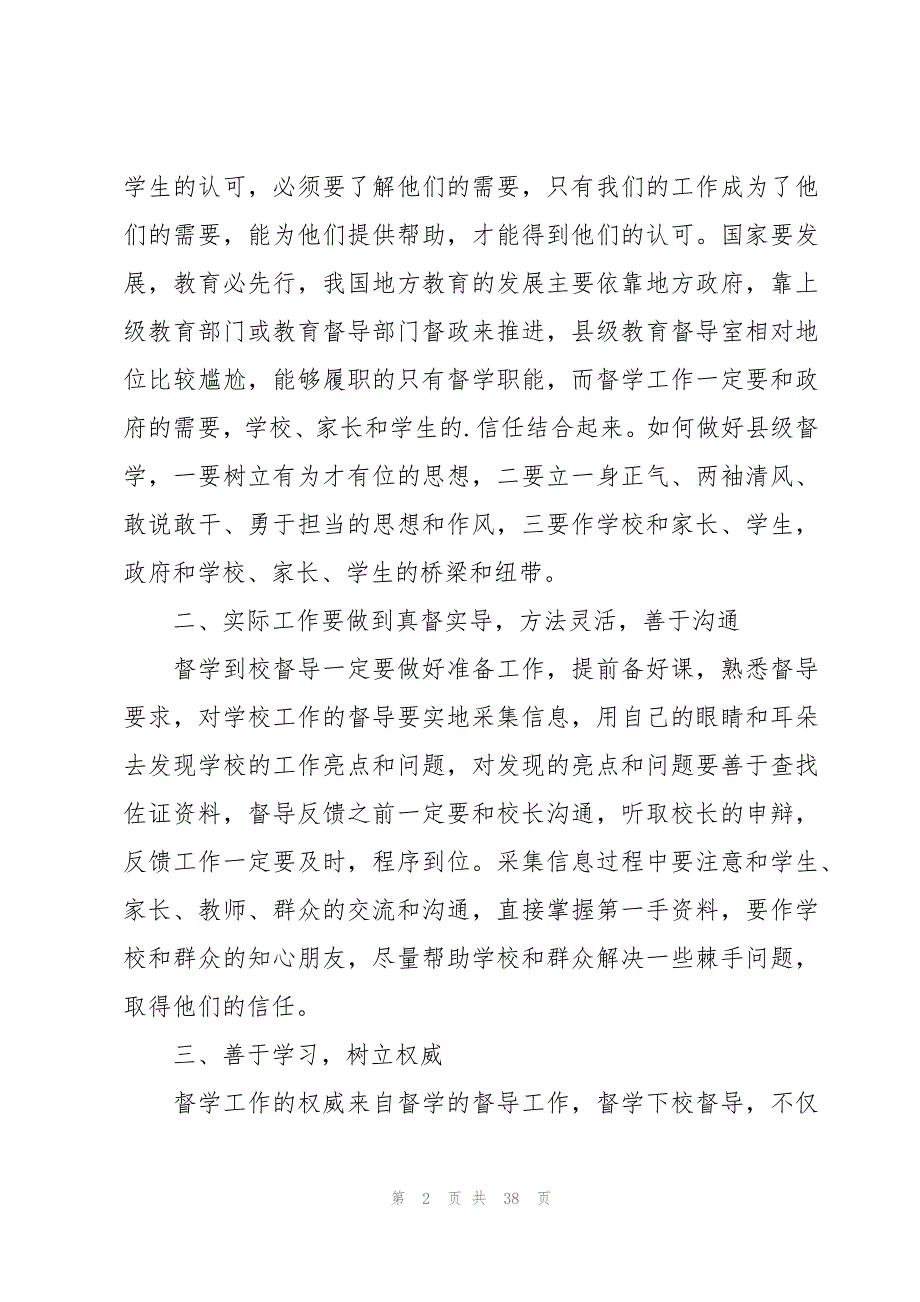 学生的认可，必须要了解他们的需要，只有我们的工作成为了他
们的需要，能为他们提供帮助，才能得到他们的认可。国家要发
展，教育必先行，我国地方教育的发展主要依靠地方政府，靠上
级教育部门或教育督导部门督政来推进，县级教育督导室相对地
位比较尴尬，能够履职的只有督学职能，而督学工作一定要和政
府的需要，学校、家长和学生的.信任结合起来。如何做好县级督
学，一要树立有为才有位的思想，二要立一身正气、两袖清风、
敢说敢干、勇于担当的思想和作风，三要作学校和家长、学生，
政府和学校、家长、学生的桥梁和纽带。
二、实际工作要做到真督实导，方法灵活，善于沟通
督学到校督导一定要做好准备工作，提前备好课，熟悉督导
要求，对学校工作的督导要实地采集信息，用自己的眼睛和耳朵
去发现学校的工作亮点和问题，对发现的亮点和问题要善于查找
佐证资料，督导反馈之前一定要和校长沟通，听取校长的申辩，
反馈工作一定要及时，程序到位。采集信息过程中要注意和学生、
家长、教师、群众的交流和沟通，直接掌握第一手资料，要作学
校和群众的知心朋友，尽量帮助学校和群众解决一些棘手问题，
取得他们的信任。
三、善于学习，树立权威
督学工作的权威来自督学的督导工作，督学下校督导，不仅
第 2 页 共 38 页